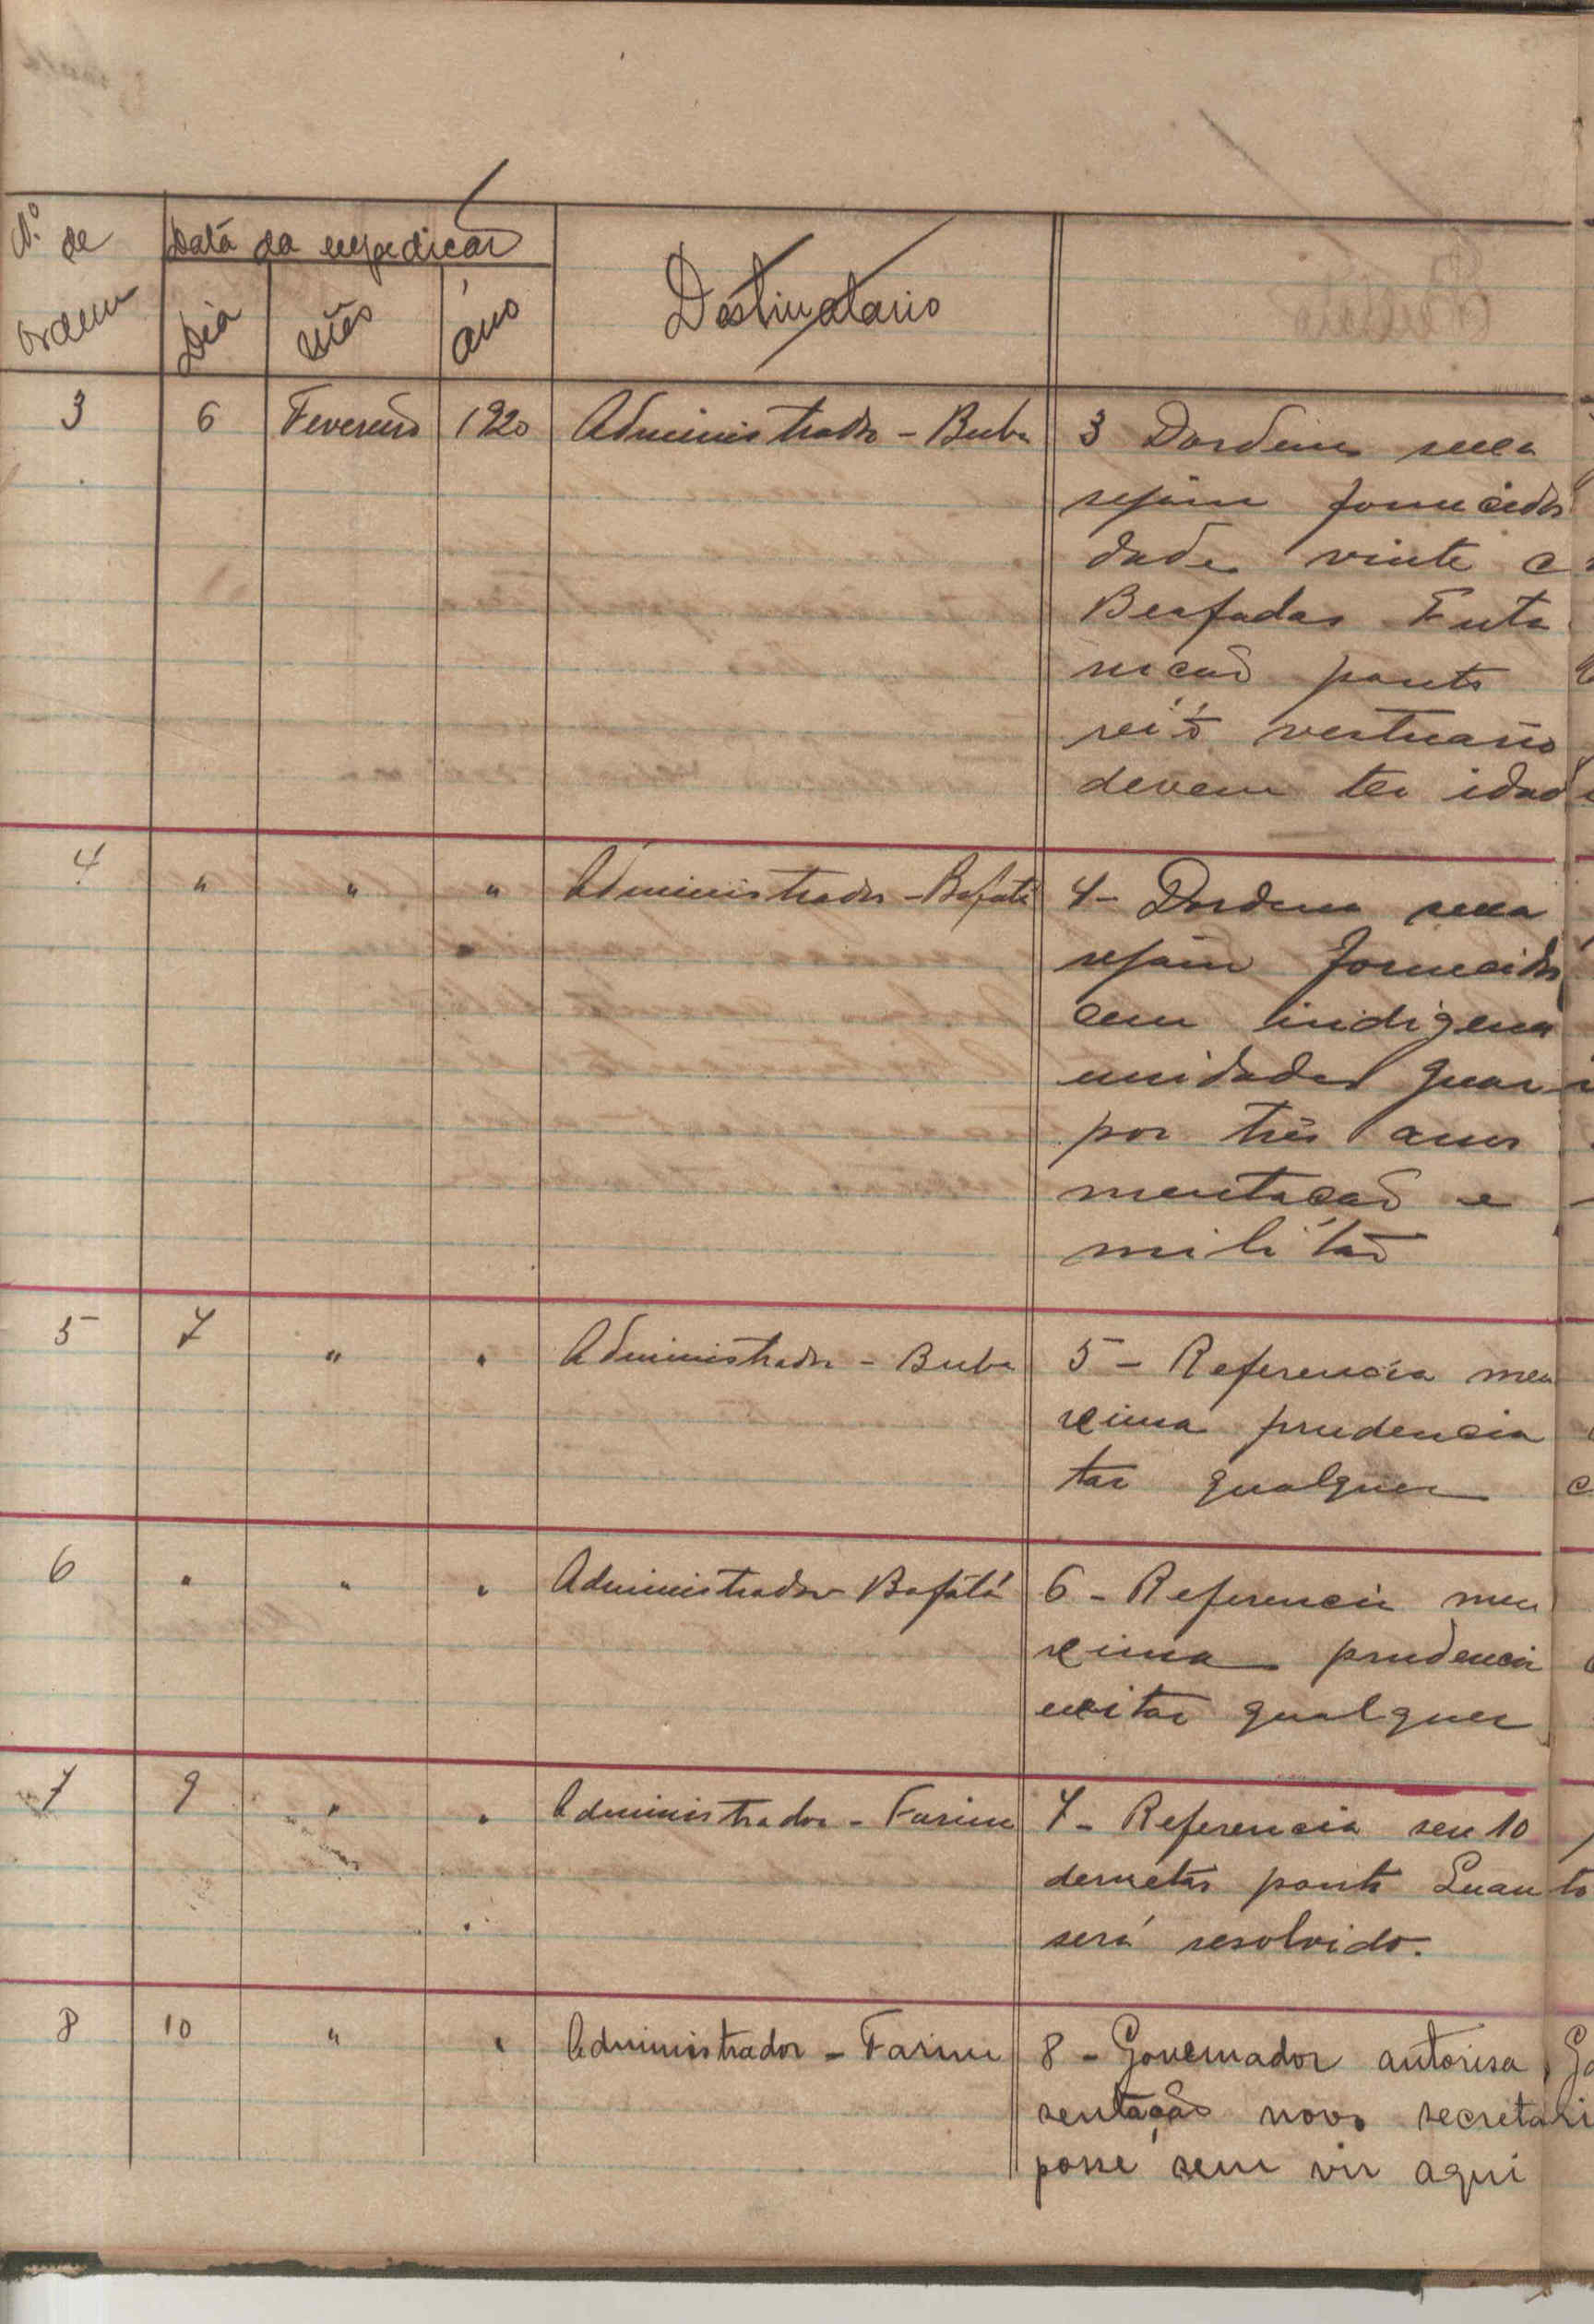 Nº de ordem
Data da expedicão
Dia
Mês
Ano
Destinatario
3 6 Fevereiro 1920 Administrador - Buba 3 Dordem sexa
sejam fornecidos
dade vinte e
Beafadas Futa
nicaõ ponto
vestuario
devem ter idade
4 " " " Administrador - Bafatá 4 - Dordem sexa
sejam fornecidos
cem indigena
unidades guar
por três anos
mentacaõ e
militar
5 7 " " Administrador - Buba 5 - Referencia meu
xima prudencia
tar qualquer
6 " " " Administrador - Bafatá 6 - Referencia meu
xima prudencia
evitar qualquer
7 9 " " Administrador - Farim 7 - Referencia seu 10
ponto Quanto
será resolvido.
8 10 " " Administrador - Farim 8 - Governador autorisa
sentação novo secretari
posse sem vir aqui